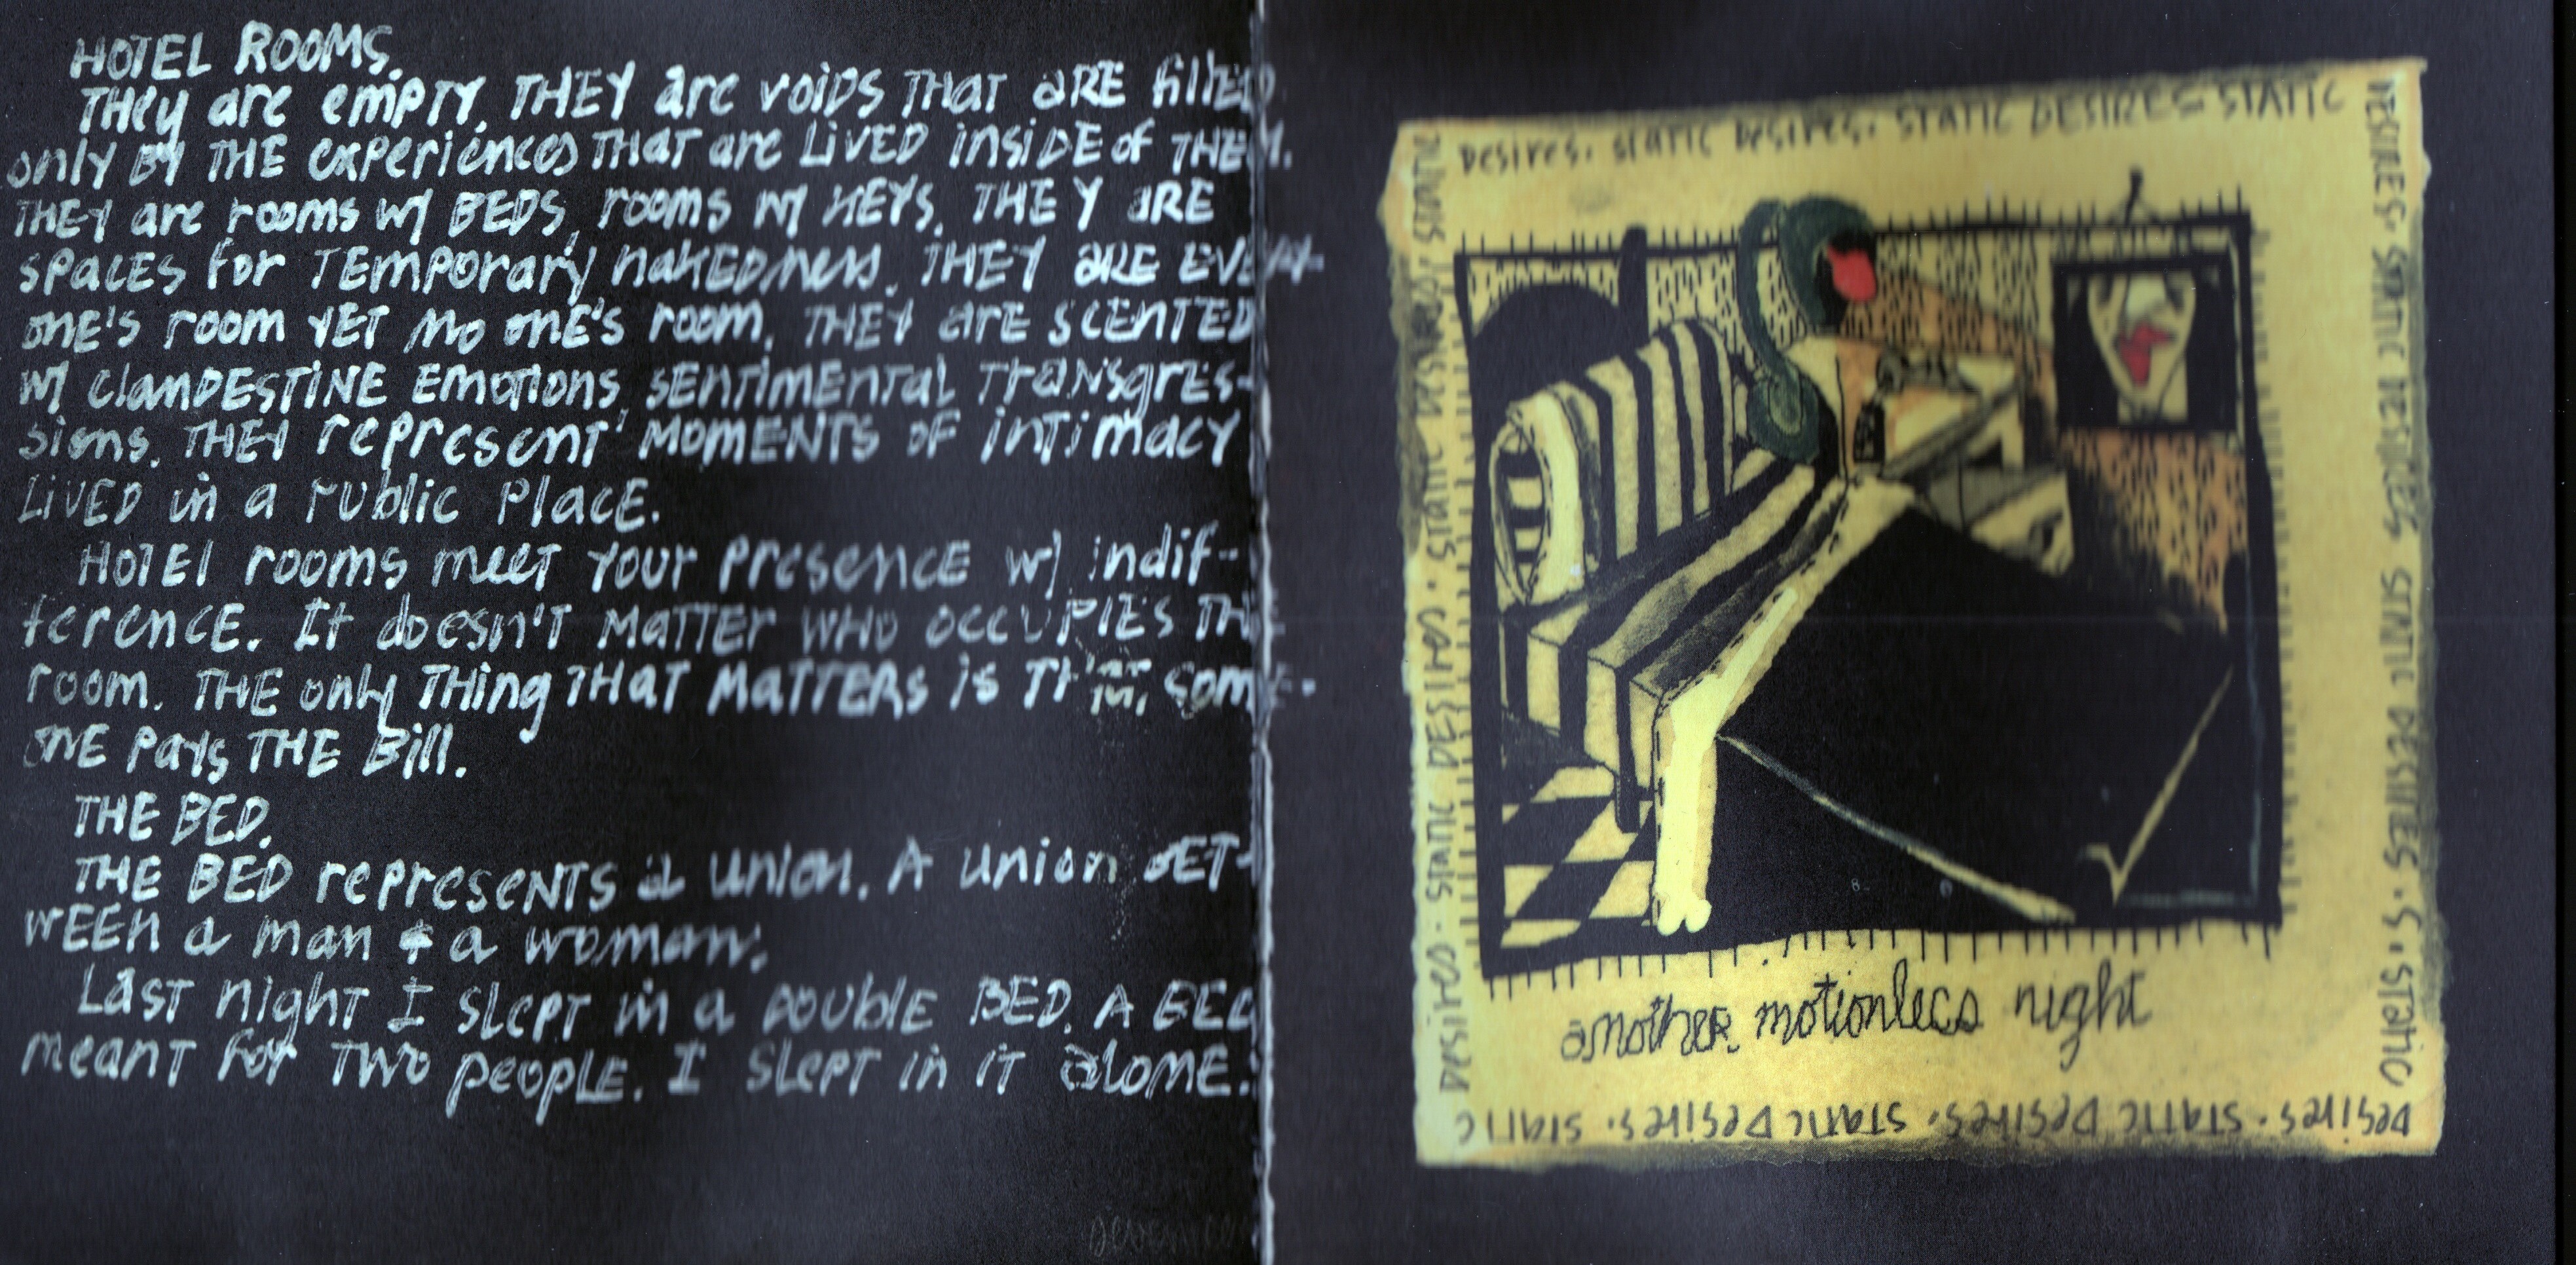 HOTEL ROOMS.
THEY are empty. THEY are voids THAT are filled
only BY THE experiences THAT are LIVED inside of THEM.
THEY are rooms w/ BEDS, rooms w/ KEYS. THEY ARE
spaces for TEMPORARY nakedness. THEY ARE EVERY-
ONE'S room YET NO ONE'S room. THEY are SCENTED
w/ clandestine emotions, sentimental transgres-
sions. THEY represent MOMENTS OF intimacy
LIVED in a PUBLIC PLACE.
Hotel rooms meet your presence w/ indif-
ference. It doesn't MATTER WHO OCCUPIES THE
room. THE only THING THAT MATTERS is THAT some-
ONE pays THE Bill.
THE BED.
THE BED represents a union. A union BET-
WEEN a man & a woman.
Last night I slept in a DOUBLE BED. A BED
meant for TWO people. I slept in it alone.
Desires. static Desires. STATIC DESIRES STATIC
DESIRES. STATIC DESIRES STATIC DESIRES. S. STATIC
Desires. STATIC Desires. STATIC Desires. STATIC
Desires. STATIC DESIRES. STATIC DESIRES STATIC
another motionless night